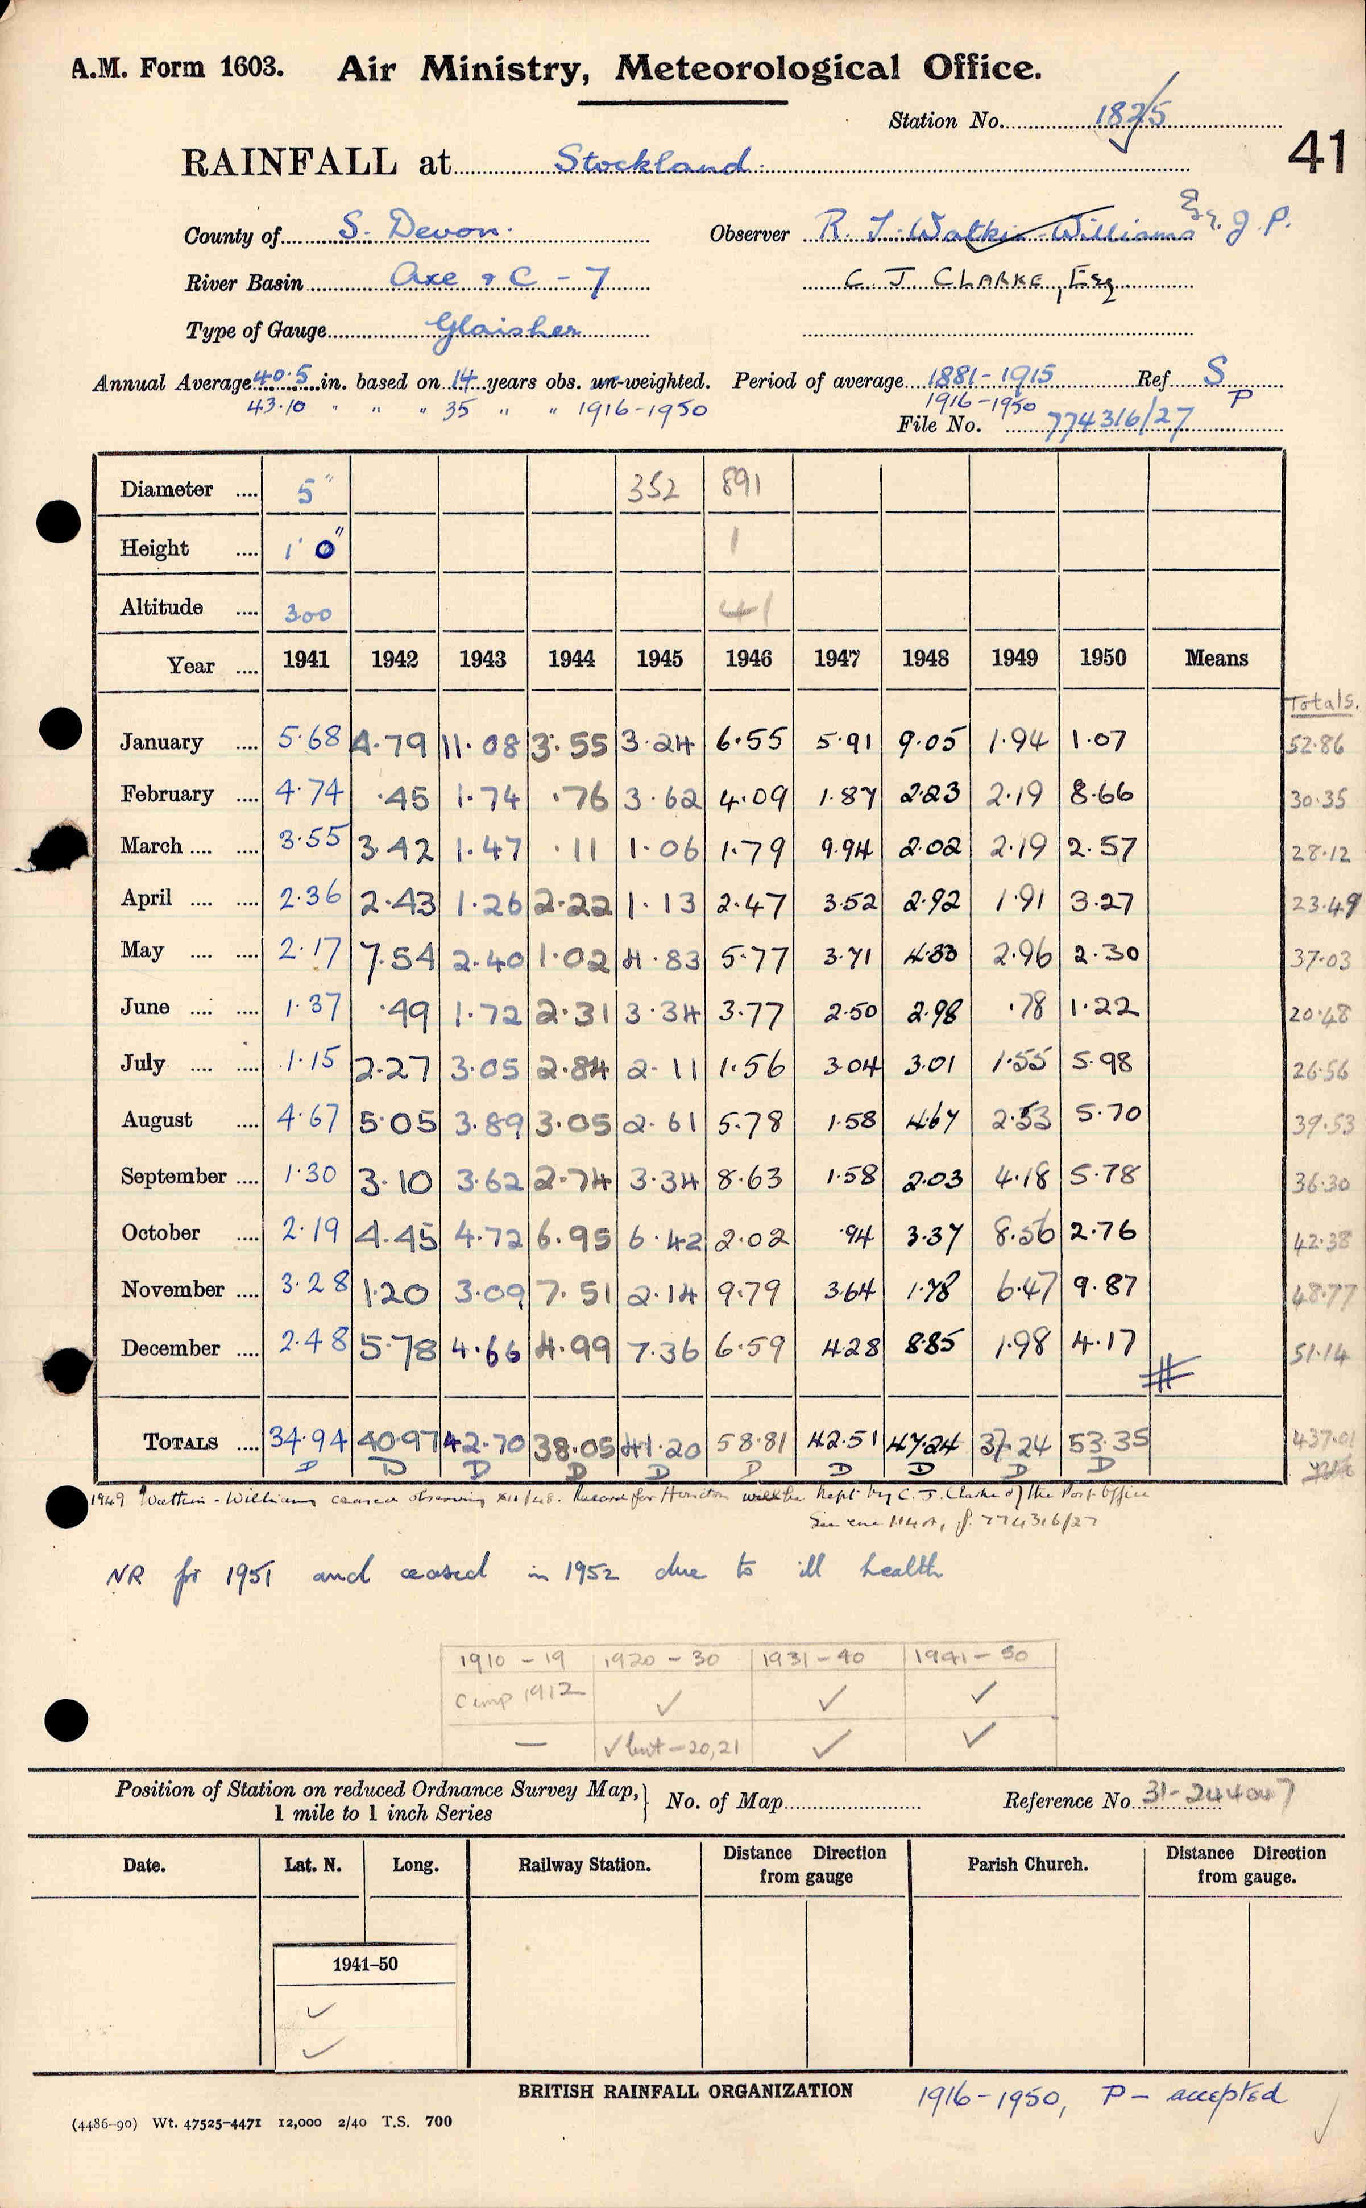 A.M. Form 1603. Air Ministry, Meteorological Office.
Station No. 1825
41
RAINFALL at Stockland.
County of S. Devon. Observer R. T. Watkin-Williams Esq. J. P.
River Basin Axe & C - 7 C. J. CLARKE, Esq
Type of Gauge Glaisher
Annual Average 40.5 in. based on 14 years obs. un-weighted. Period of average 1881-1915 Ref S
43.10 " " " 35 " " 1916-1950 1916-1950 P
File No. 774316/27
Diameter .... 5" 352 891
Height .... 1' 0" 1
Altitude .... 300 41
Year .... 1941 1942 1943 1944 1945 1946 1947 1948 1949 1950 Means
Totals.
January .... 5.68 4.79 11.08 3.55 3.24 6.55 5.91 9.05 1.94 1.07 52.86
February .... 4.74 .45 1.74 .76 3.62 4.09 1.87 2.23 2.19 8.66 30.35
March .... .... 3.55 3.42 1.47 .11 1.06 1.79 9.94 2.02 2.19 2.57 28.12
April .... .... 2.36 2.43 1.26 2.22 1.13 2.47 3.52 2.92 1.91 3.27 23.49
May .... .... 2.17 7.54 2.40 1.02 4.83 5.77 3.71 4.33 2.96 2.30 37.03
June .... .... 1.37 .49 1.72 2.31 3.34 3.77 2.50 2.98 .78 1.22 20.48
July .... .... 1.15 2.27 3.05 2.84 2.11 1.56 3.04 3.01 1.55 5.98 26.56
August .... 4.67 5.05 3.89 3.05 2.61 5.78 1.58 4.67 2.53 5.70 39.53
September .... 1.30 3.10 3.62 2.74 3.34 8.63 1.58 2.03 4.18 5.78 36.30
October .... 2.19 4.45 4.72 6.95 6.42 2.02 .94 3.37 8.56 2.76 42.38
November .... 3.28 1.20 3.09 7.51 2.14 9.79 3.64 1.78 6.47 9.87 48.77
December .... 2.48 5.78 4.66 4.99 7.36 6.59 4.28 8.85 1.98 4.17 51.14
TOTALS .... 34.94 40.97 42.70 38.05 41.20 58.81 42.51 47.24 37.24 53.35 437.01
D D D D D D D D D D
1949 Watkin-Williams ceased observing XII/48. Record for Honiton will be kept by C. J. Clarke of the Post Office
See f. 774316/27
NR for 1951 and ceased in 1952 due to ill health
1910 - 19 1920 - 30 1931 - 40 1941 - 50
Comp 1912 ✓ ✓ ✓
— ✓ but -20,21 ✓ ✓
Position of Station on reduced Ordnance Survey Map, 1 mile to 1 inch Series } No. of Map Reference No 31-244047
Date. Lat. N. Long. Railway Station. Distance Direction from gauge Parish Church. Distance Direction from gauge.
1941-50
✓
✓
BRITISH RAINFALL ORGANIZATION 1916-1950, P - accepted
(4486-90) Wt. 47525-4471 12,000 2/40 T.S. 700